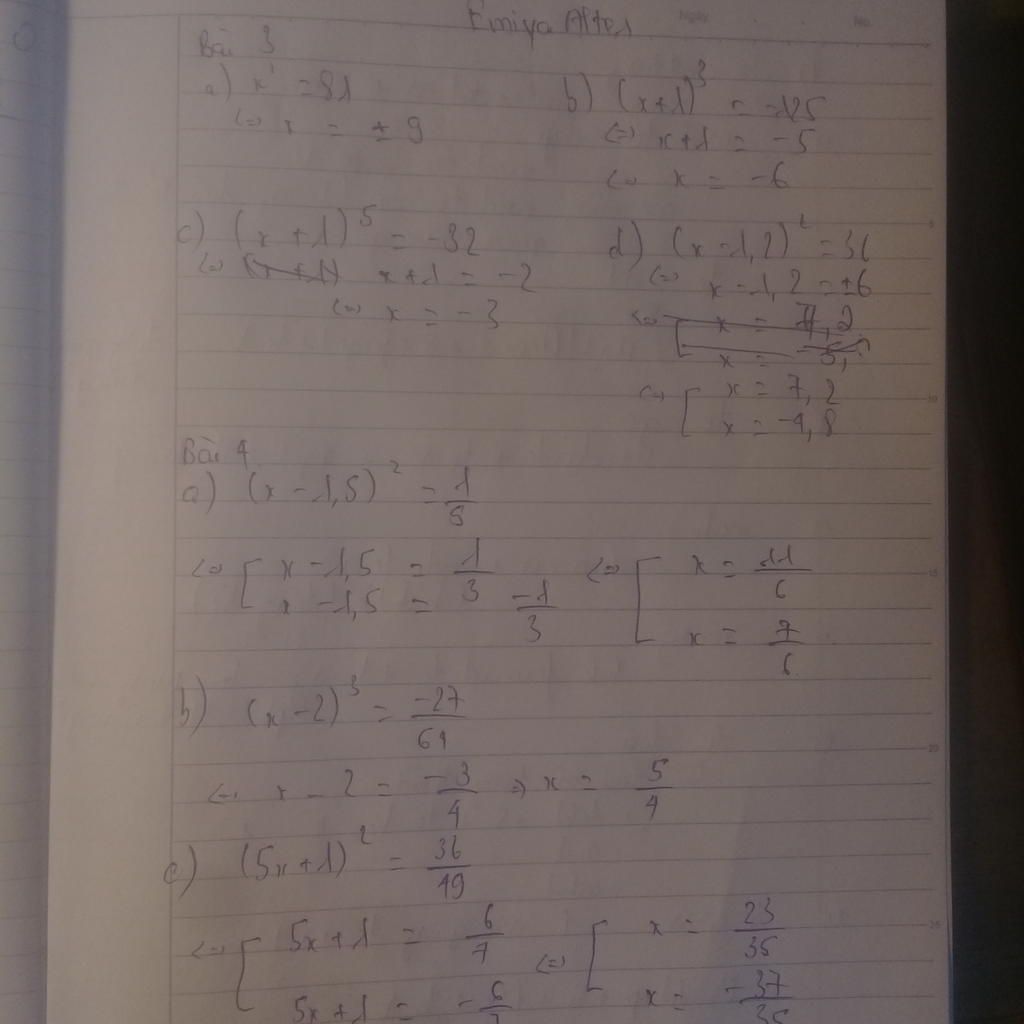 Emiya Alter
Bài 3
a) x² = 81
<=> x = ± 9
b) (x+1)³ = -125
<=> x+1 = -5
<=> x = -6
c) (x+1)⁵ = -32
<=> x+1 = -2
<=> x = -3
d) (x-1,2)² = 36
<=> x-1,2 = ±6
<=> [ x = 7,2
x = -4,8
Bài 4
a) (x-1,5)² = 1/9
<=> [ x-1,5 = 1/3 <=> [ x = 11/6
x-1,5 = -1/3 x = 7/6
b) (x-2)³ = -27/64
<=> x-2 = -3/4 => x = 5/4
c) (5x+1)² = 36/49
<=> [ 5x+1 = 6/7 <=> [ x = 23/35
5x+1 = -6/7 x = -37/35